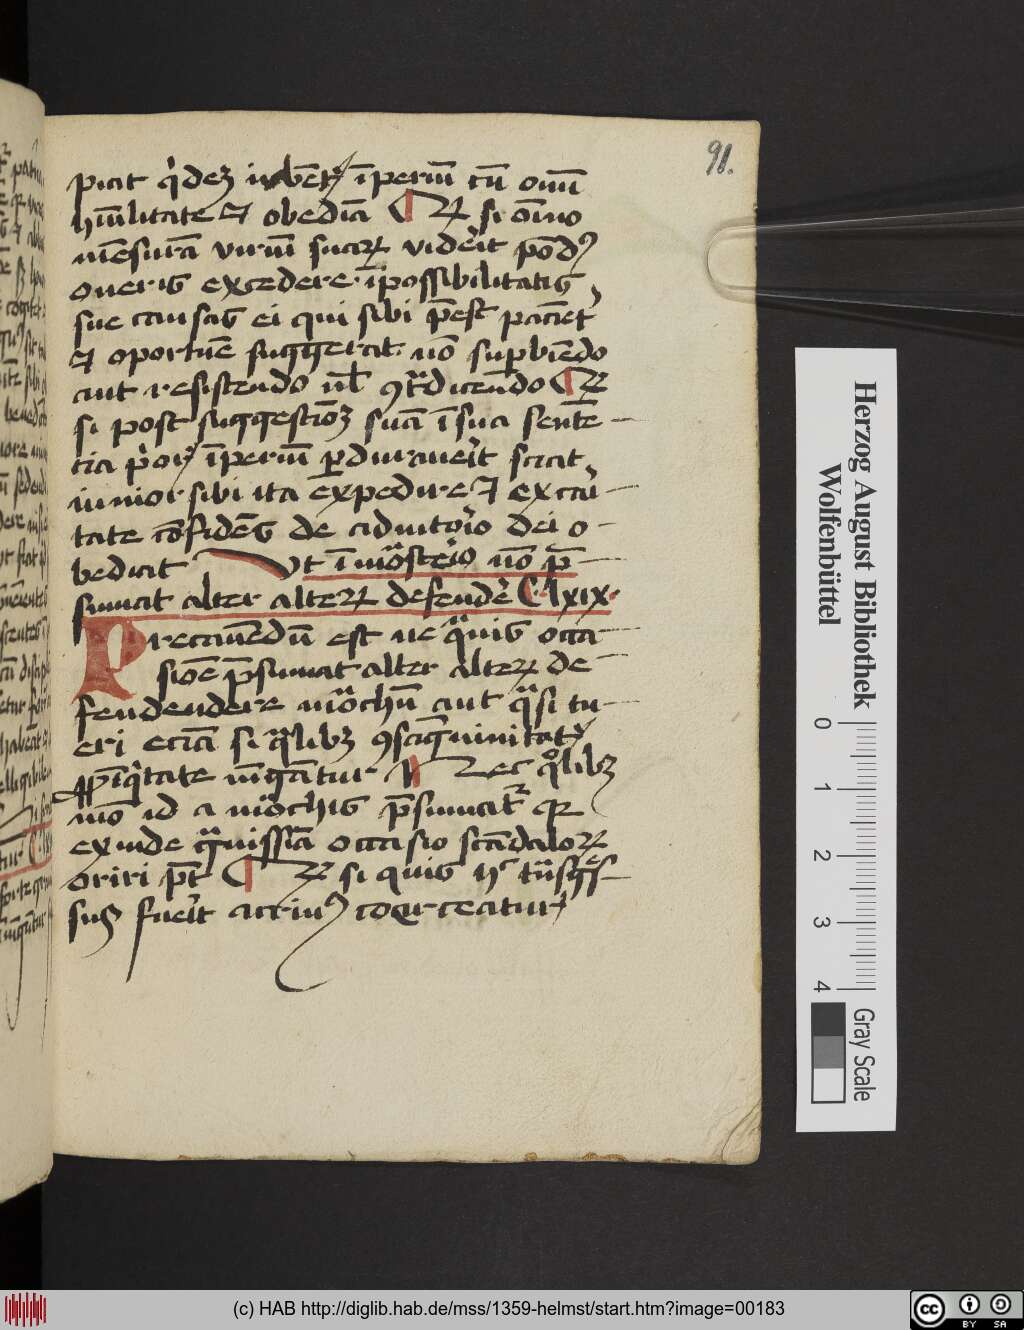 91.
picit q'dez iubēt' īperiū cū omī
hūilitate et obediā Qz si oīno
mēsurā viriū suaꝝ viderit pōdꝰ
oneris excedere īpossibilitatis
sue causas ei qui sibi p̄est paciēt'
et oportūe suggerat nō supbiēdo
aut resistendo ul' ꝯt̄dicendo Qz
si post suggestiōꝫ suā ī sua senten-
tia p'or' īperiū ꝑduraverit sciat
iunior sibi ita expedire et ex cari-
tate cōfidēs de adiutorio dei o-
bediat Vt ī mōsterio nō p̄-
sumat alter alteꝝ defendē C lxix
Precauēdū est ne q̄uis occa-
sione p̄sumat alter alteꝝ de-
fendendere mōchū aut q̄si tu-
eri eciā si q̄libꝫ ꝯsāguinitatꝭ
ꝓpīq'tate iūgātur Nec q°libꝫ
mō id a mōchis p̄sumat' qꝛ
exinde g̃uissīa occasio scādaloꝝ
oriri pt̄ Qz si quis hͨ tūsgͤs-
sus fuerit acriꝰ coerceatur
Herzog August Bibliothek
Wolfenbüttel
0 1 2 3 4
Gray Scale
(c) HAB http://diglib.hab.de/mss/1359-helmst/start.htm?image=00183
cc BY SA